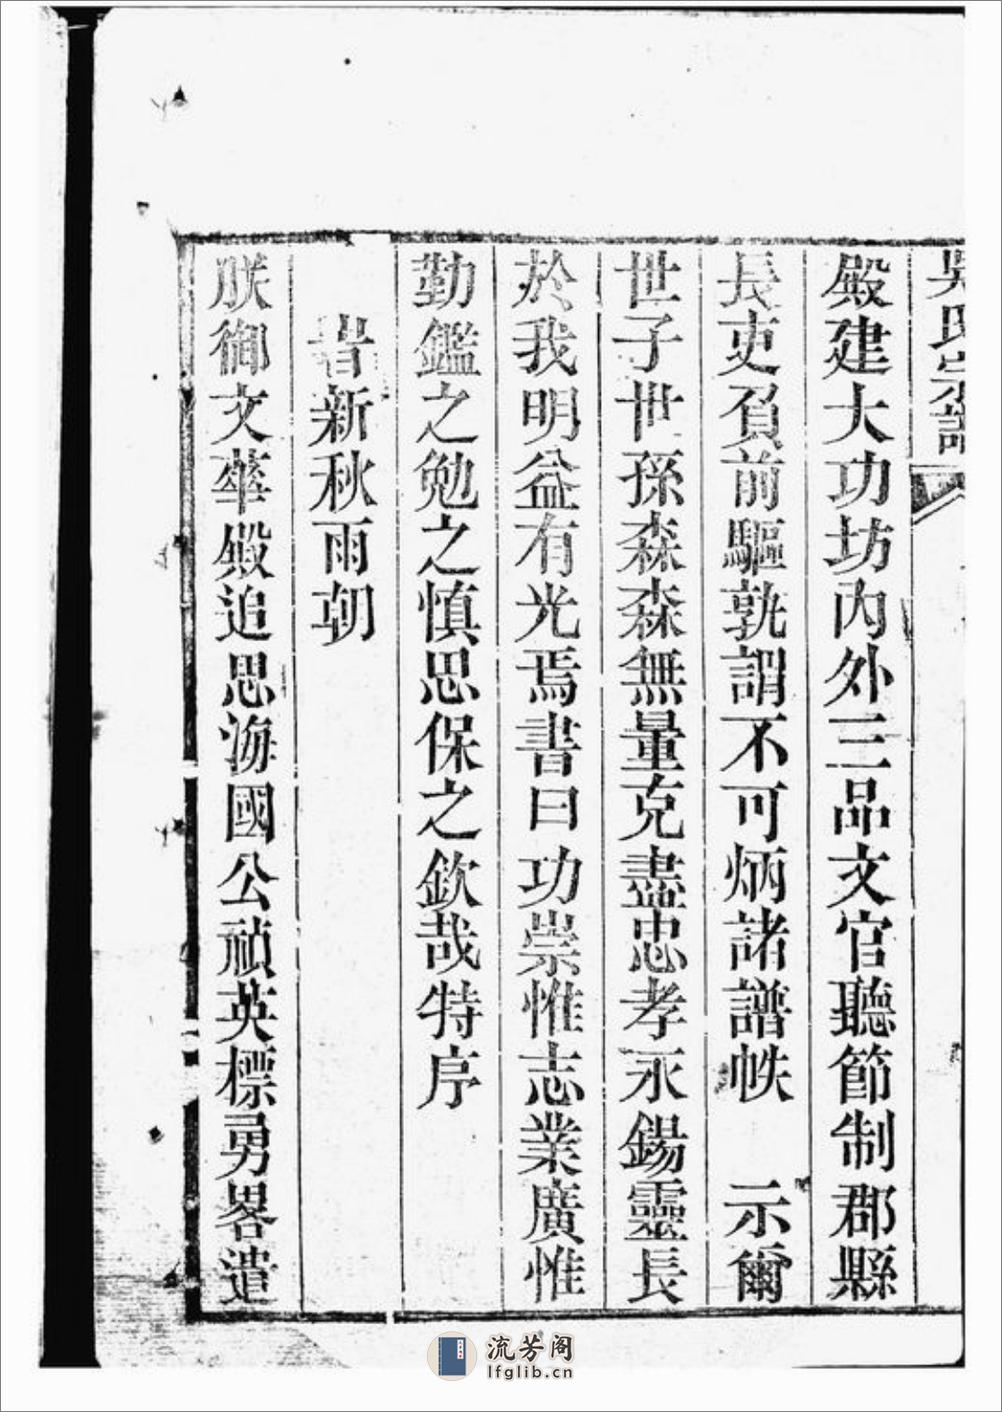 吳氏宗譜
殿建大功坊內外三品文官聽節制郡縣
長吏負前驅孰謂不可炳諸譜帙　示爾
世子世孫森森無量克盡忠孝永錫靈長
於我明益有光焉書曰功崇惟志業廣惟
勤鑑之勉之慎思保之欽哉特序
旹新秋雨朝
朕御文華殿追思海國公禎英標勇畧遣
流芳阁
lfglib.cn